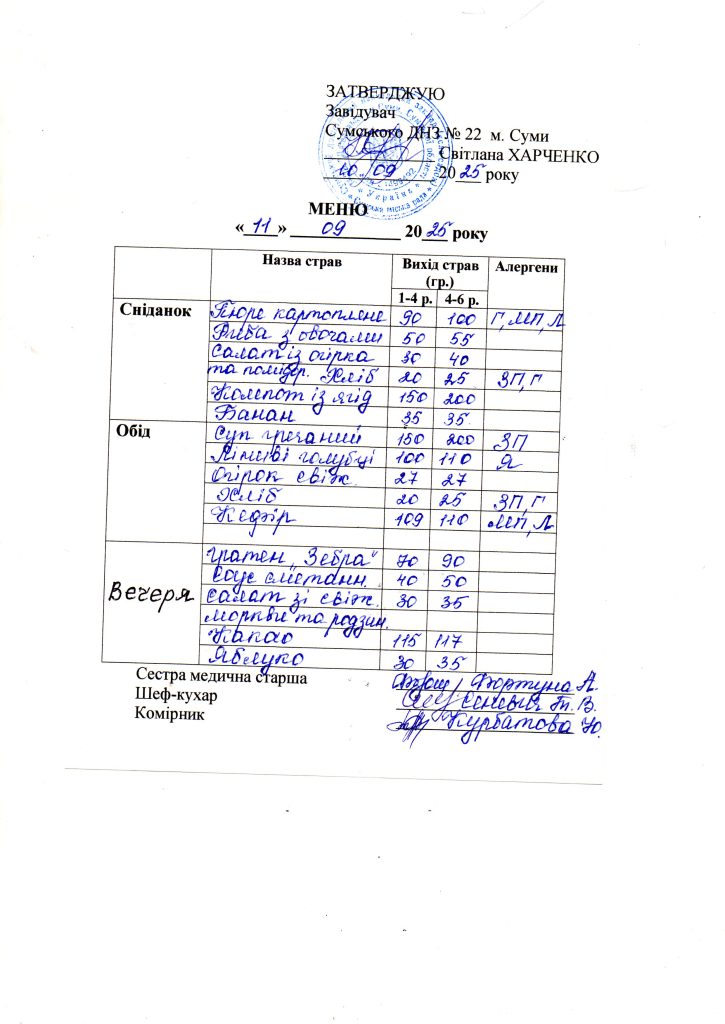 ЗАТВЕРДЖУЮ
Завідувач
Сумського ДНЗ № 22 м. Суми
Світлана ХАРЧЕНКО
10 09 20 25 року
МЕНЮ
« 11 » 09 20 25 року
Назва страв Вихід страв (гр.) Алергени
1-4 р. 4-6 р.
Сніданок Пюре картопляне 90 100 Г,МП,Л
Риба з овочами 50 55
Салат із огірка 30 40
та помідор. Хліб 20 25 ЗП,Г
Компот із ягід 150 200
Банан 35 35
Обід Суп гречаний 150 200 ЗП
Ліниві голубці 100 110 Я
Огірок свіж. 27 27
Хліб 20 25 ЗП,Г
Кефір 109 110 МП,Л
Вечеря Гратен „Зебра" 70 90
Соус сметанн. 40 50
Салат зі свіж. 30 35
моркви та родзин.
Какао 115 117
Яблуко 30 35
Сестра медична старша Фортуна А.
Шеф-кухар Сеневич Т. В.
Комірник Курбатова Ю.